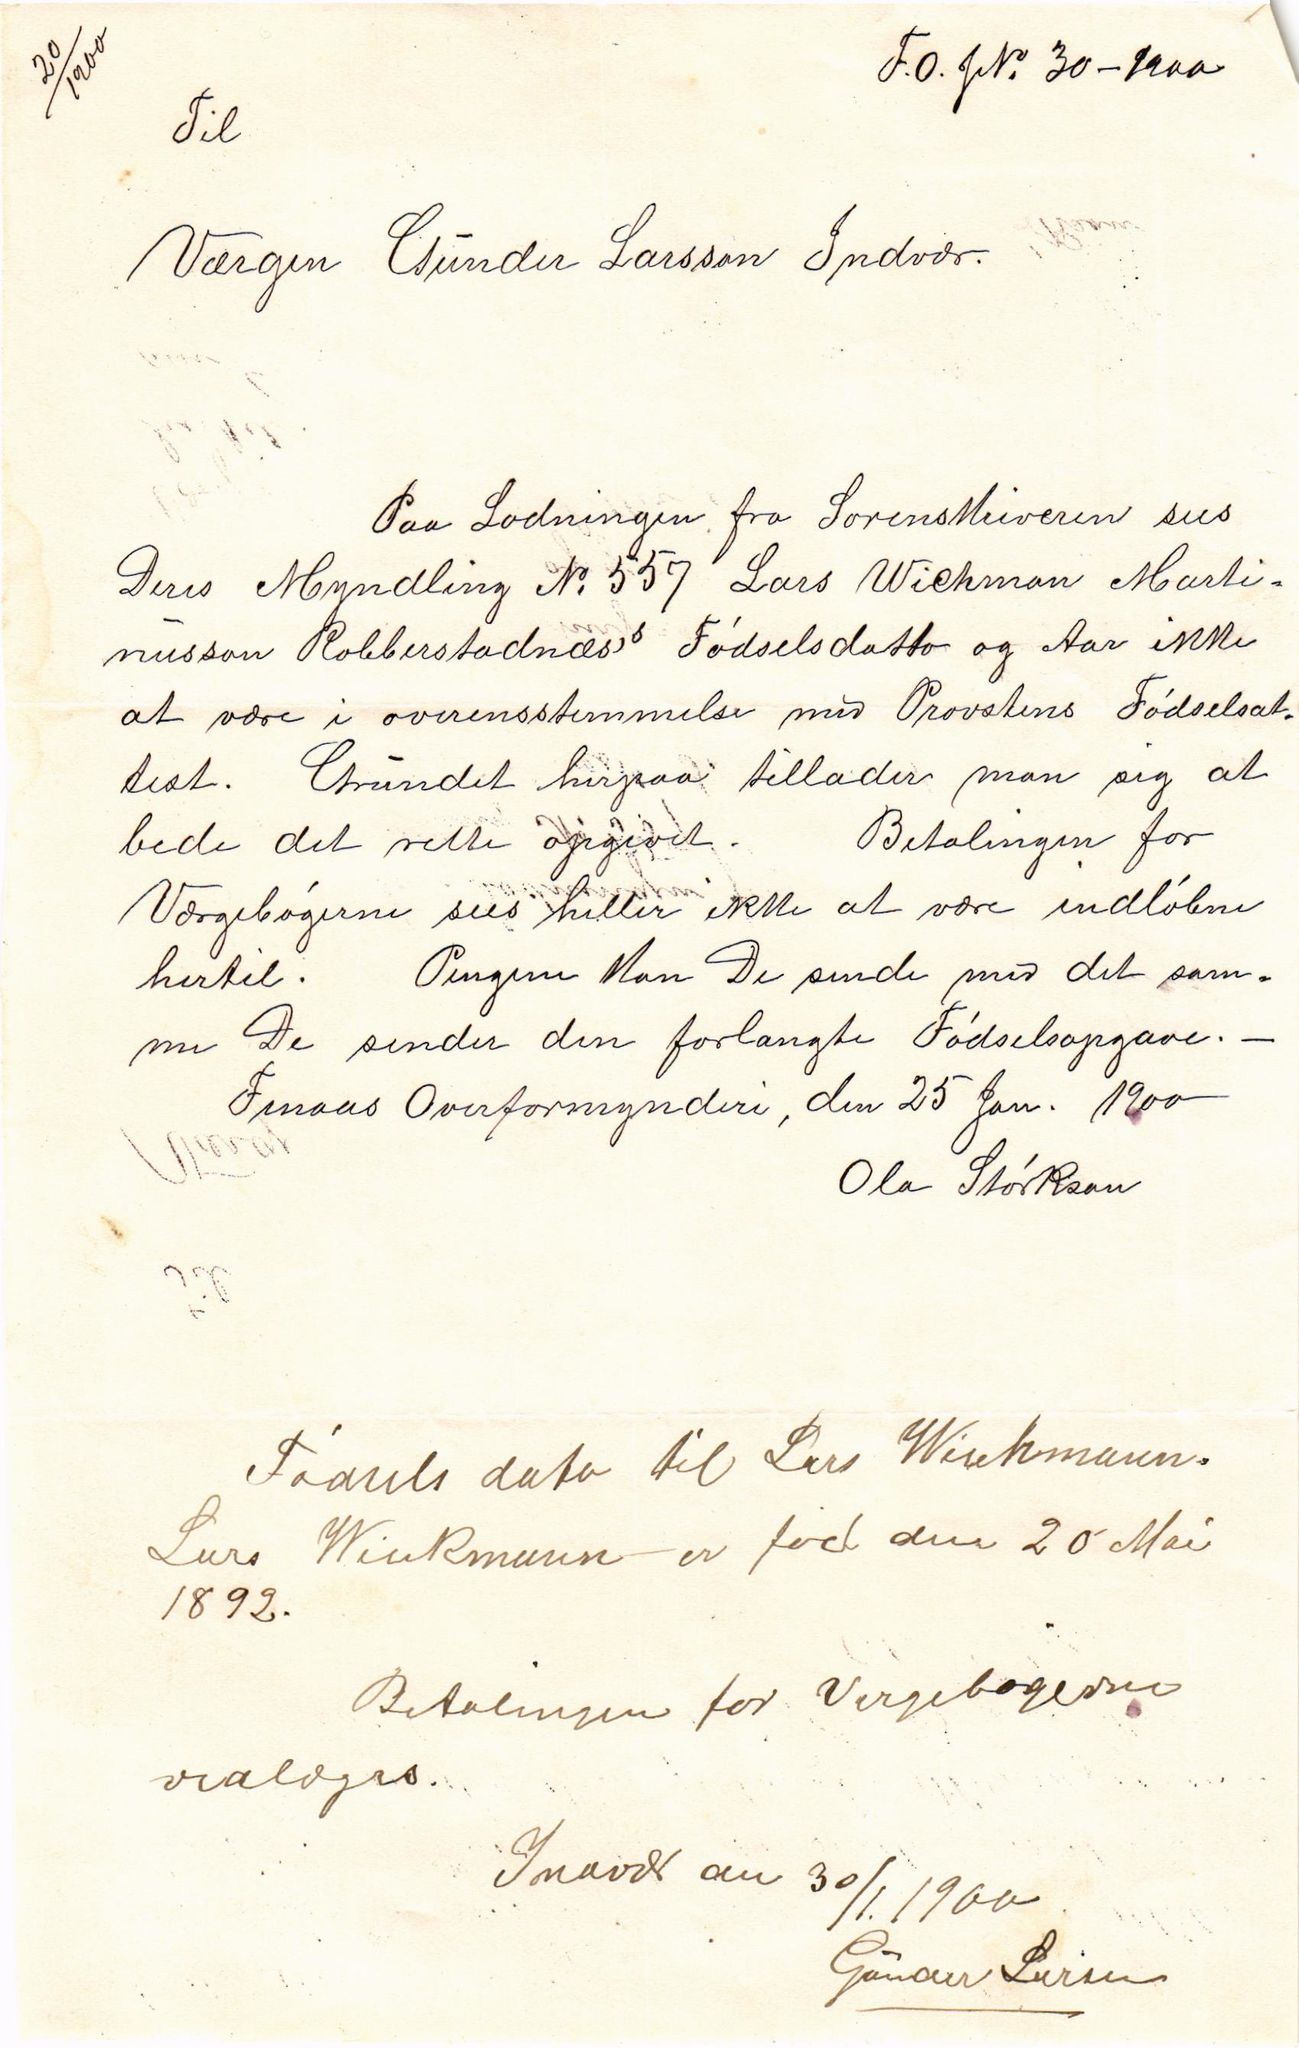 20/1900
F.O. JNo. 30 – 1900
Til
Værgen Gunder Larsson Indvær.
Paa Ladningen fra Sorenskriveren sees
Deres Myndling No. 557 Lars Wichman Marti-
nusson Robberstadnæss's Fødselsdatto og Aar ikke
at være i overensstemmelse med Provstens Fødselsat-
test. Grundet herpaa tillader man sig at
bede det rette opgivet. Betalingen for
Værgebøgerne sees heller ikke at være indløbne
hertil. Pengene kan De sende med det sam-
me De sender den forlangte Fødselsopgave. –
Finaas Overformynderi, den 25 Jan. 1900
Ola Størkson
Fødsels dato til Lars Winkmann.
Lars Winkmann er fød den 20 Mai
1892.
Betalingen for Vergebøgerne
vedlægges.
Indvær den 30/1. 1900
Gunder Larsen